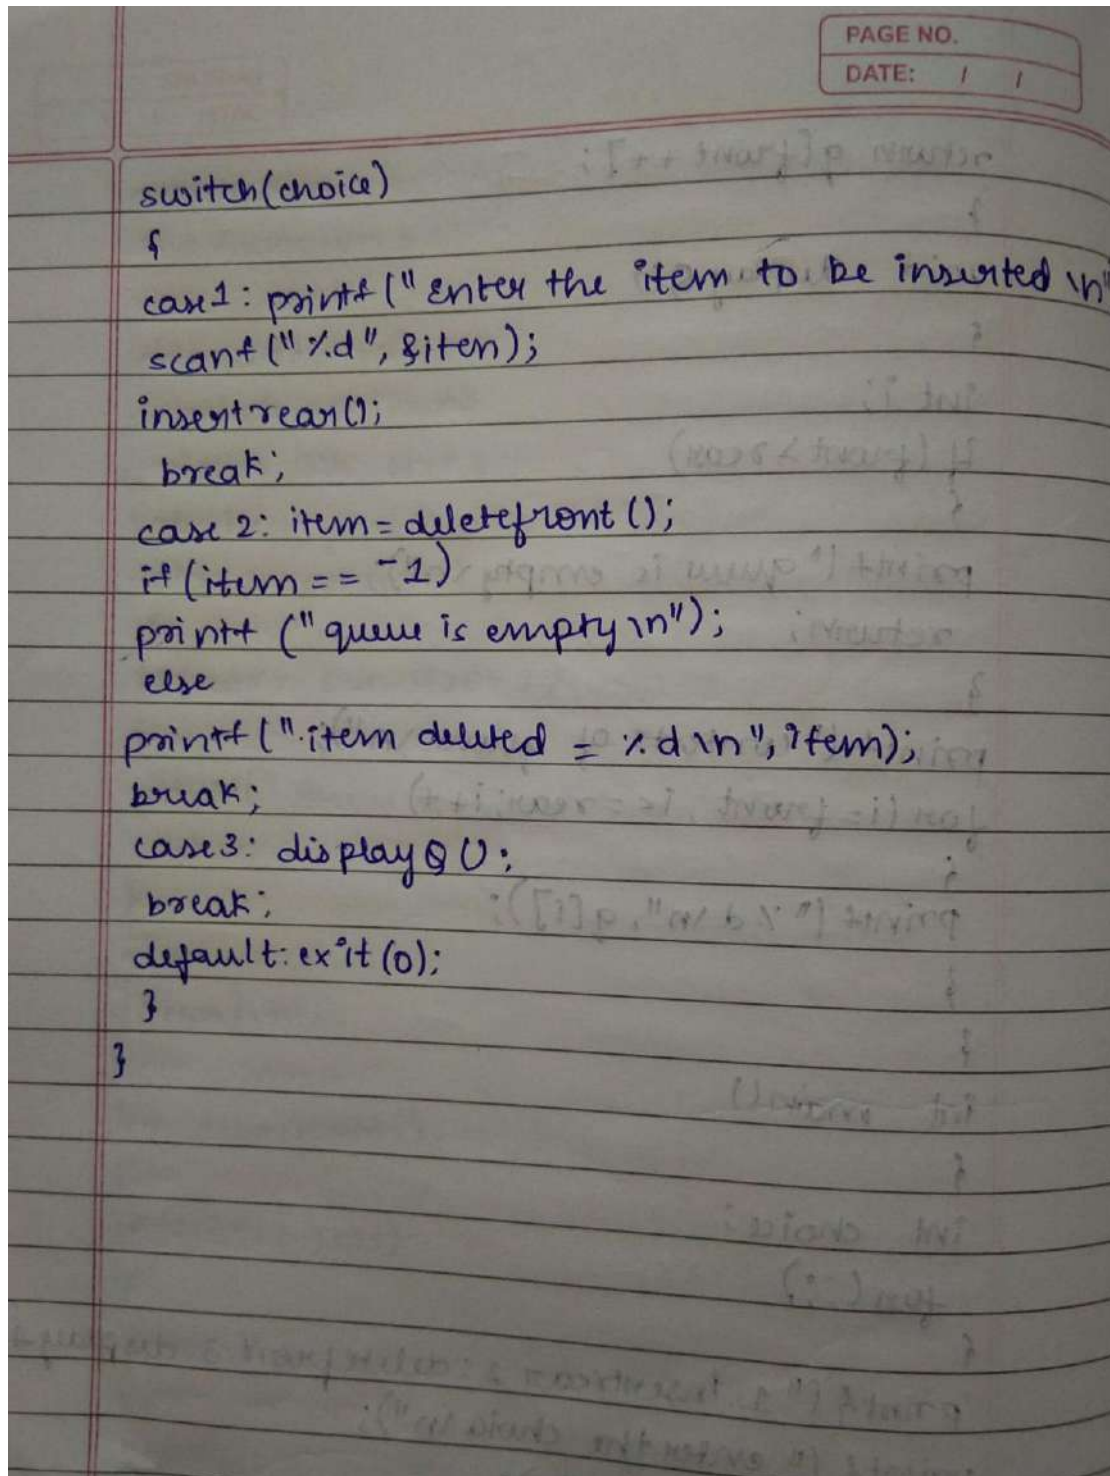 PAGE NO.
DATE: / /
switch(choice)
{
case1: printf("Enter the item to be inserted \n"
scanf("%d", &iten);
insertrear();
break;
case 2: item = deletefront();
if(item == -1)
printf ("queue is empty \n");
else
printf ("item deleted = %d \n", item);
break;
case3: displayQ();
break;
default: exit (0);
}
}